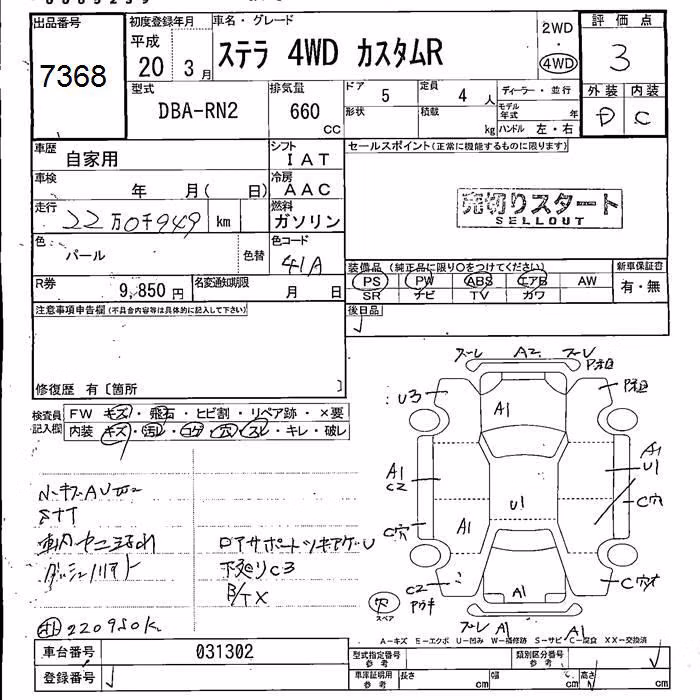 出品番号
7368
初度登録年月
平成
20 3月
車名・グレード
ステラ 4WD カスタムR
2WD
・
4WD
評価点
3
型式
DBA-RN2
排気量
660
cc
ドア
5
定員
4人
形状
積載
kg
ディーラー・並行
モデル年式 年
ハンドル 左・右
外装 内装
D C
車歴
自家用
シフト
IAT
セールスポイント(正常に機能するものに限ります)
車検
年 月( 日)
冷房
AAC
走行
22万0千949 km
燃料
ガソリン
売切りスタート
SELLOUT
色
パール
色替
色コード
41A
R券
9,850円
名変通知期限
月 日
装備品(純正品に限り○をつけてください)
PS PW ABS エアB AW
SR ナビ TV カワ
新車保証書
有・無
後日品
注意事項申告欄(不具合内容等は具体的に記入して下さい)
修復歴 有〔箇所 〕
検査員記入欄
FW キズ・飛石・ヒビ割・リペア跡・×要
内装 キズ・汚レ・コゲ・穴・スレ・キレ・破レ
A2
U3
A1
A1
C2
A1
U1
U1
C穴
C穴
A1
C2
A1
穴
スペア
A1
A1
ロアサポートツキアゲU
下廻りC3
220950K
A-キズ E-エクボ U-凹み W-補修跡 S-サビ C-腐食 XX-交換済
車台番号
031302
登録番号
型式指定番号
参考
類別区分番号
参考
車庫証明用
参考
長さ cm
幅 cm
高さ cm